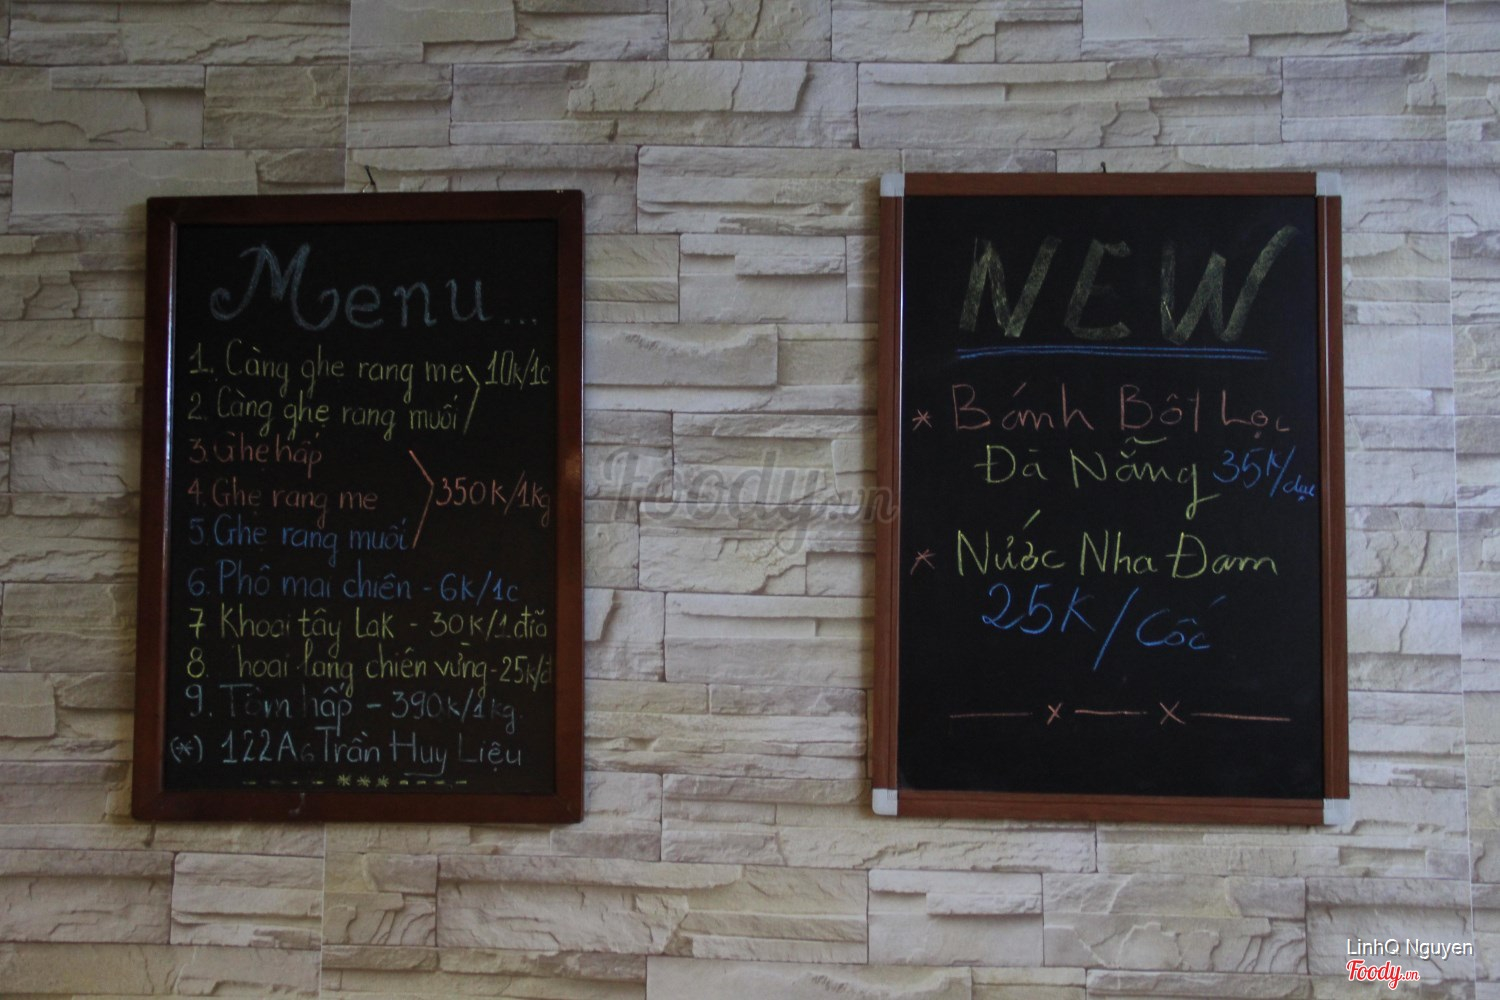 Menu...
1. Càng ghẹ rang me
2. Càng ghẹ rang muối
10k/1c
3. Ghẹ hấp
4. Ghẹ rang me
5. Ghẹ rang muối
350K/1kg
6. Phô mai chiên - 6k/1c
7 Khoai tây Lak - 30K/1đĩa
8 hoai lang chiên vừng - 25k/đ
9. Tôm hấp - 390k/1kg.
(*) 122A6 Trần Huy Liệu
NEW
* Bánh Bột Lọc
Đà Nẵng 35K/
* Nước Nha Đam
25K/Cốc
Foody.vn
LinhQ Nguyen
Foody.vn